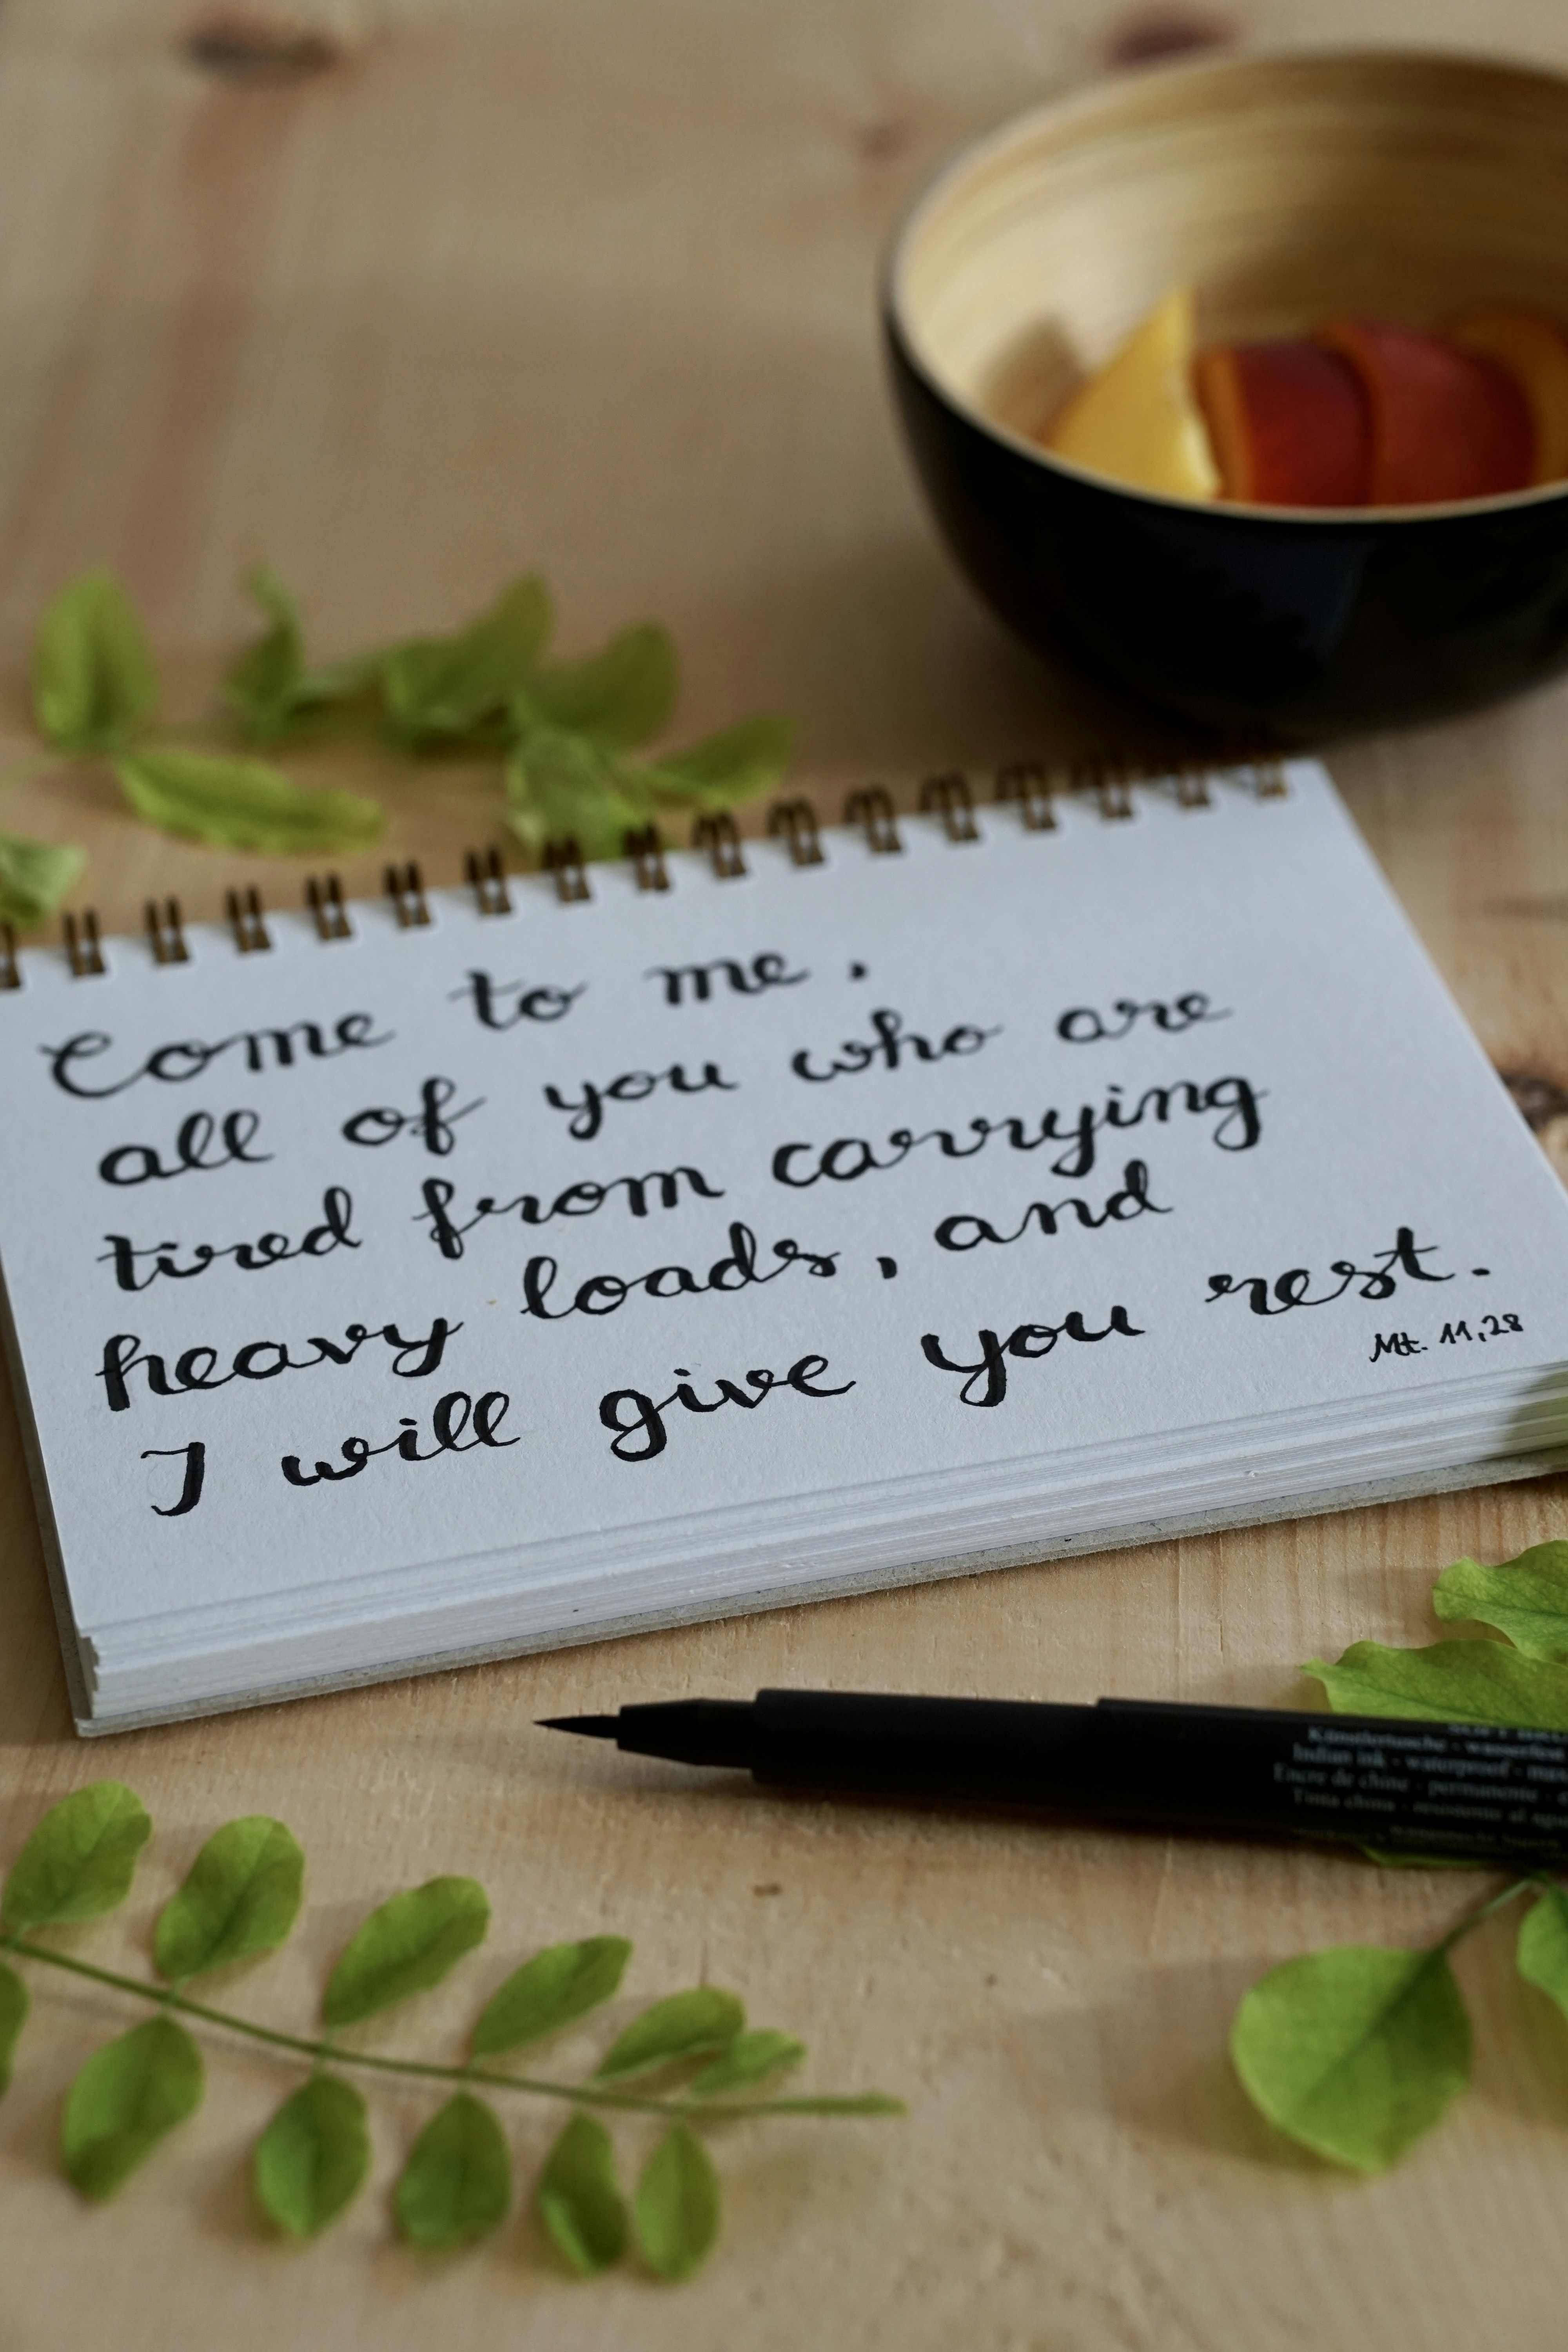 Come to me,
all of you who are
tired from carrying
heavy loads, and
I will give you rest.
Mt. 11,28
Künstlertusche - wasserfest
Indian ink - waterproof -
Encre de chine - permanente -
Tinta china - resistente al